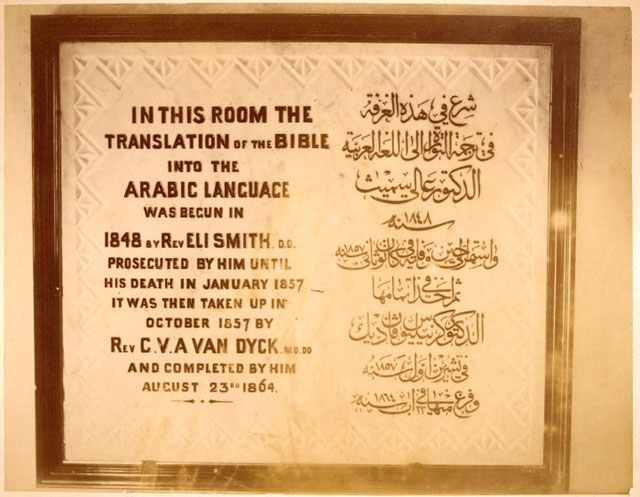 IN THIS ROOM THE
TRANSLATION OF THE BIBLE
INTO THE
ARABIC LANGUAGE
WAS BEGUN IN
1848 BY REV ELI SMITH. D.D.
PROSECUTED BY HIM UNTIL
HIS DEATH IN JANUARY 1857
IT WAS THEN TAKEN UP IN
OCTOBER 1857 BY
REV C.V.A VAN DYCK. M.D. DD
AND COMPLETED BY HIM
AUGUST 23RD 1864.
شرع في هذه الغرفة
في ترجمة التوراة الى اللغة العربية
الدكتور عالي سميث
سنة ١٨٤٨
واستمر الى حين وفاته في كانون الثاني سنة ١٨٥٧
ثم اخذ في اتمامها
الدكتور كرنيليوس فان ديك
في تشرين اول سنة ١٨٥٧
وفرغ منها في ٢٣ اب سنة ١٨٦٤